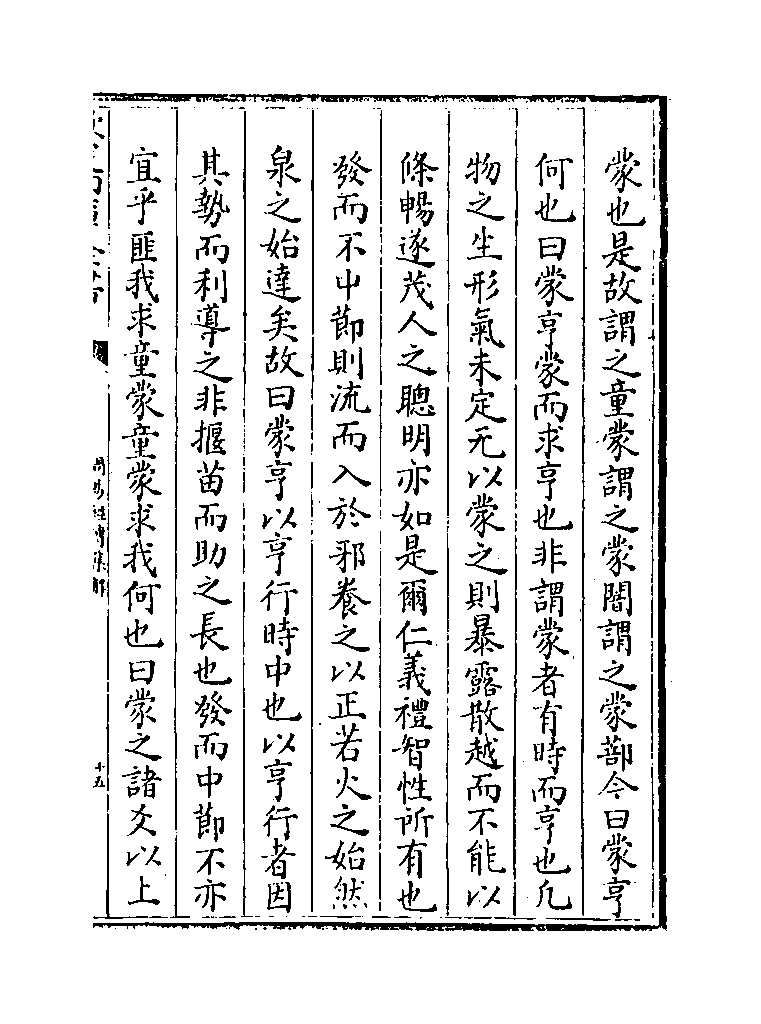 蒙也是故謂之童蒙謂之蒙闇謂之蒙蔀今曰蒙亨
何也曰蒙亨蒙而求亨也非謂蒙者有時而亨也凡
物之生形氣未定无以蒙之則暴露散越而不能以
條暢遂茂人之聰明亦如是爾仁義禮智性所有也
發而不中節則流而入於邪養之以正若火之始然
泉之始達矣故曰蒙亨以亨行時中也以亨行者因
其勢而利導之非揠苗而助之長也發而中節不亦
宜乎匪我求童蒙童蒙求我何也曰蒙之諸爻以上
周易經傳集解
十五